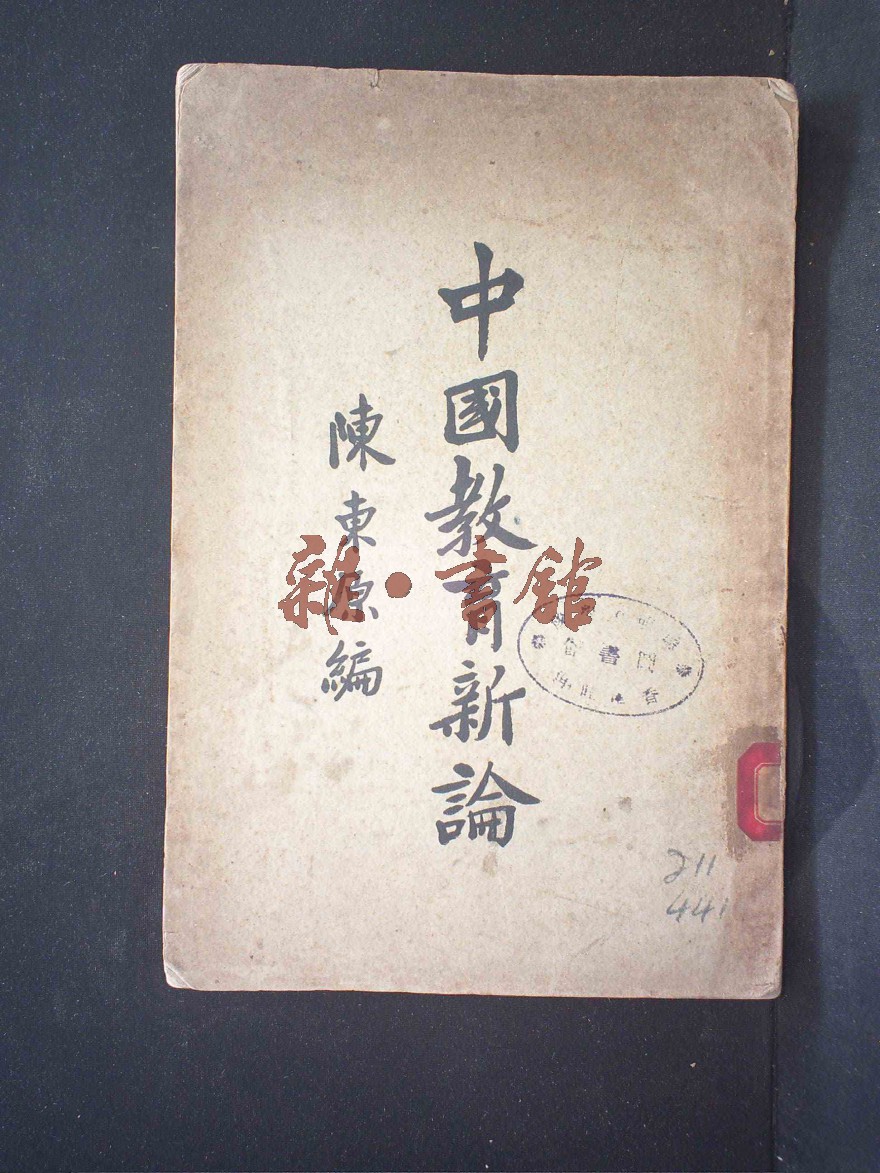 中國教育新論
陳東原編
雜·書館
圖書
211
441